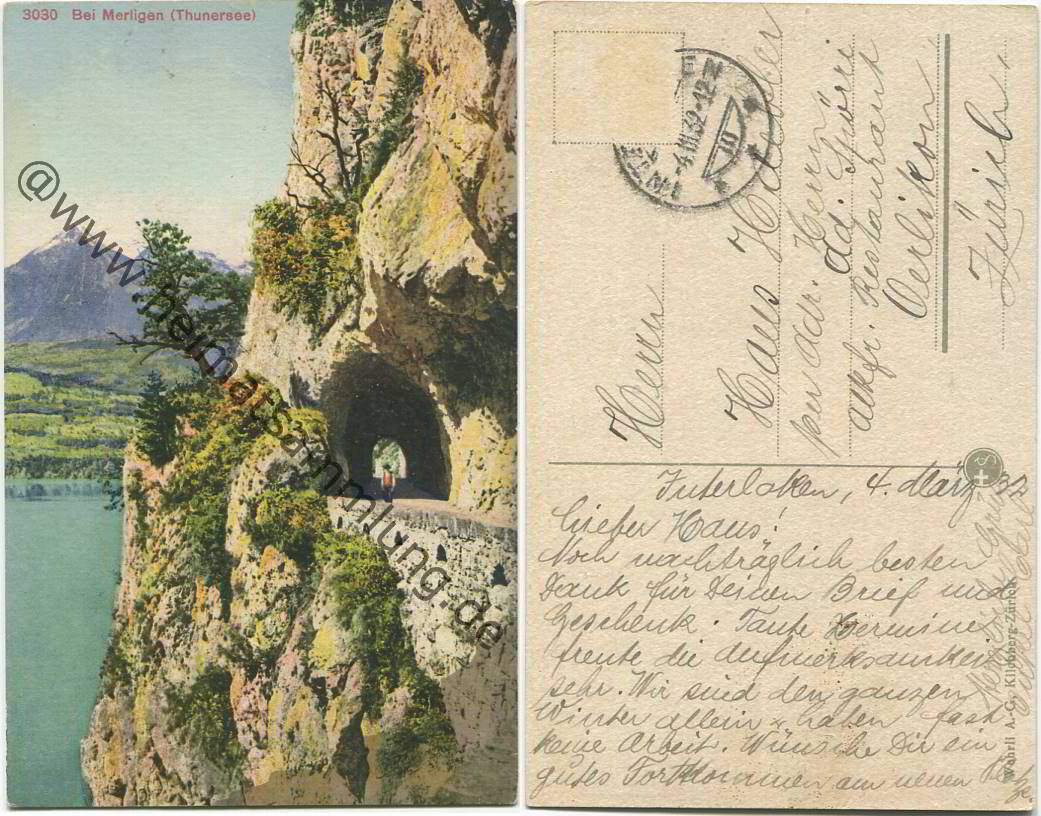 3030 Bei Merligen (Thunersee)
@www.heimatsammlung.de
4.III.32-12
10
Herrn
Hans
per Adr. Herrn
Ad. Spörri
alkfr. Restaurant
Oerlikon
Zürich.
Interlaken, 4. März 32
Lieber Hans!
Noch nachträglich besten
Dank für Deinen Brief und
Geschenk. Tante Hermine
freute die Aufmerksamkeit
sehr. Wir sind den ganzen
Winter allein & haben fast
keine Arbeit. Wünsche Dir ein
gutes Fortkommen am neuen
Wehrli A.-G., Kilchberg-Zürich